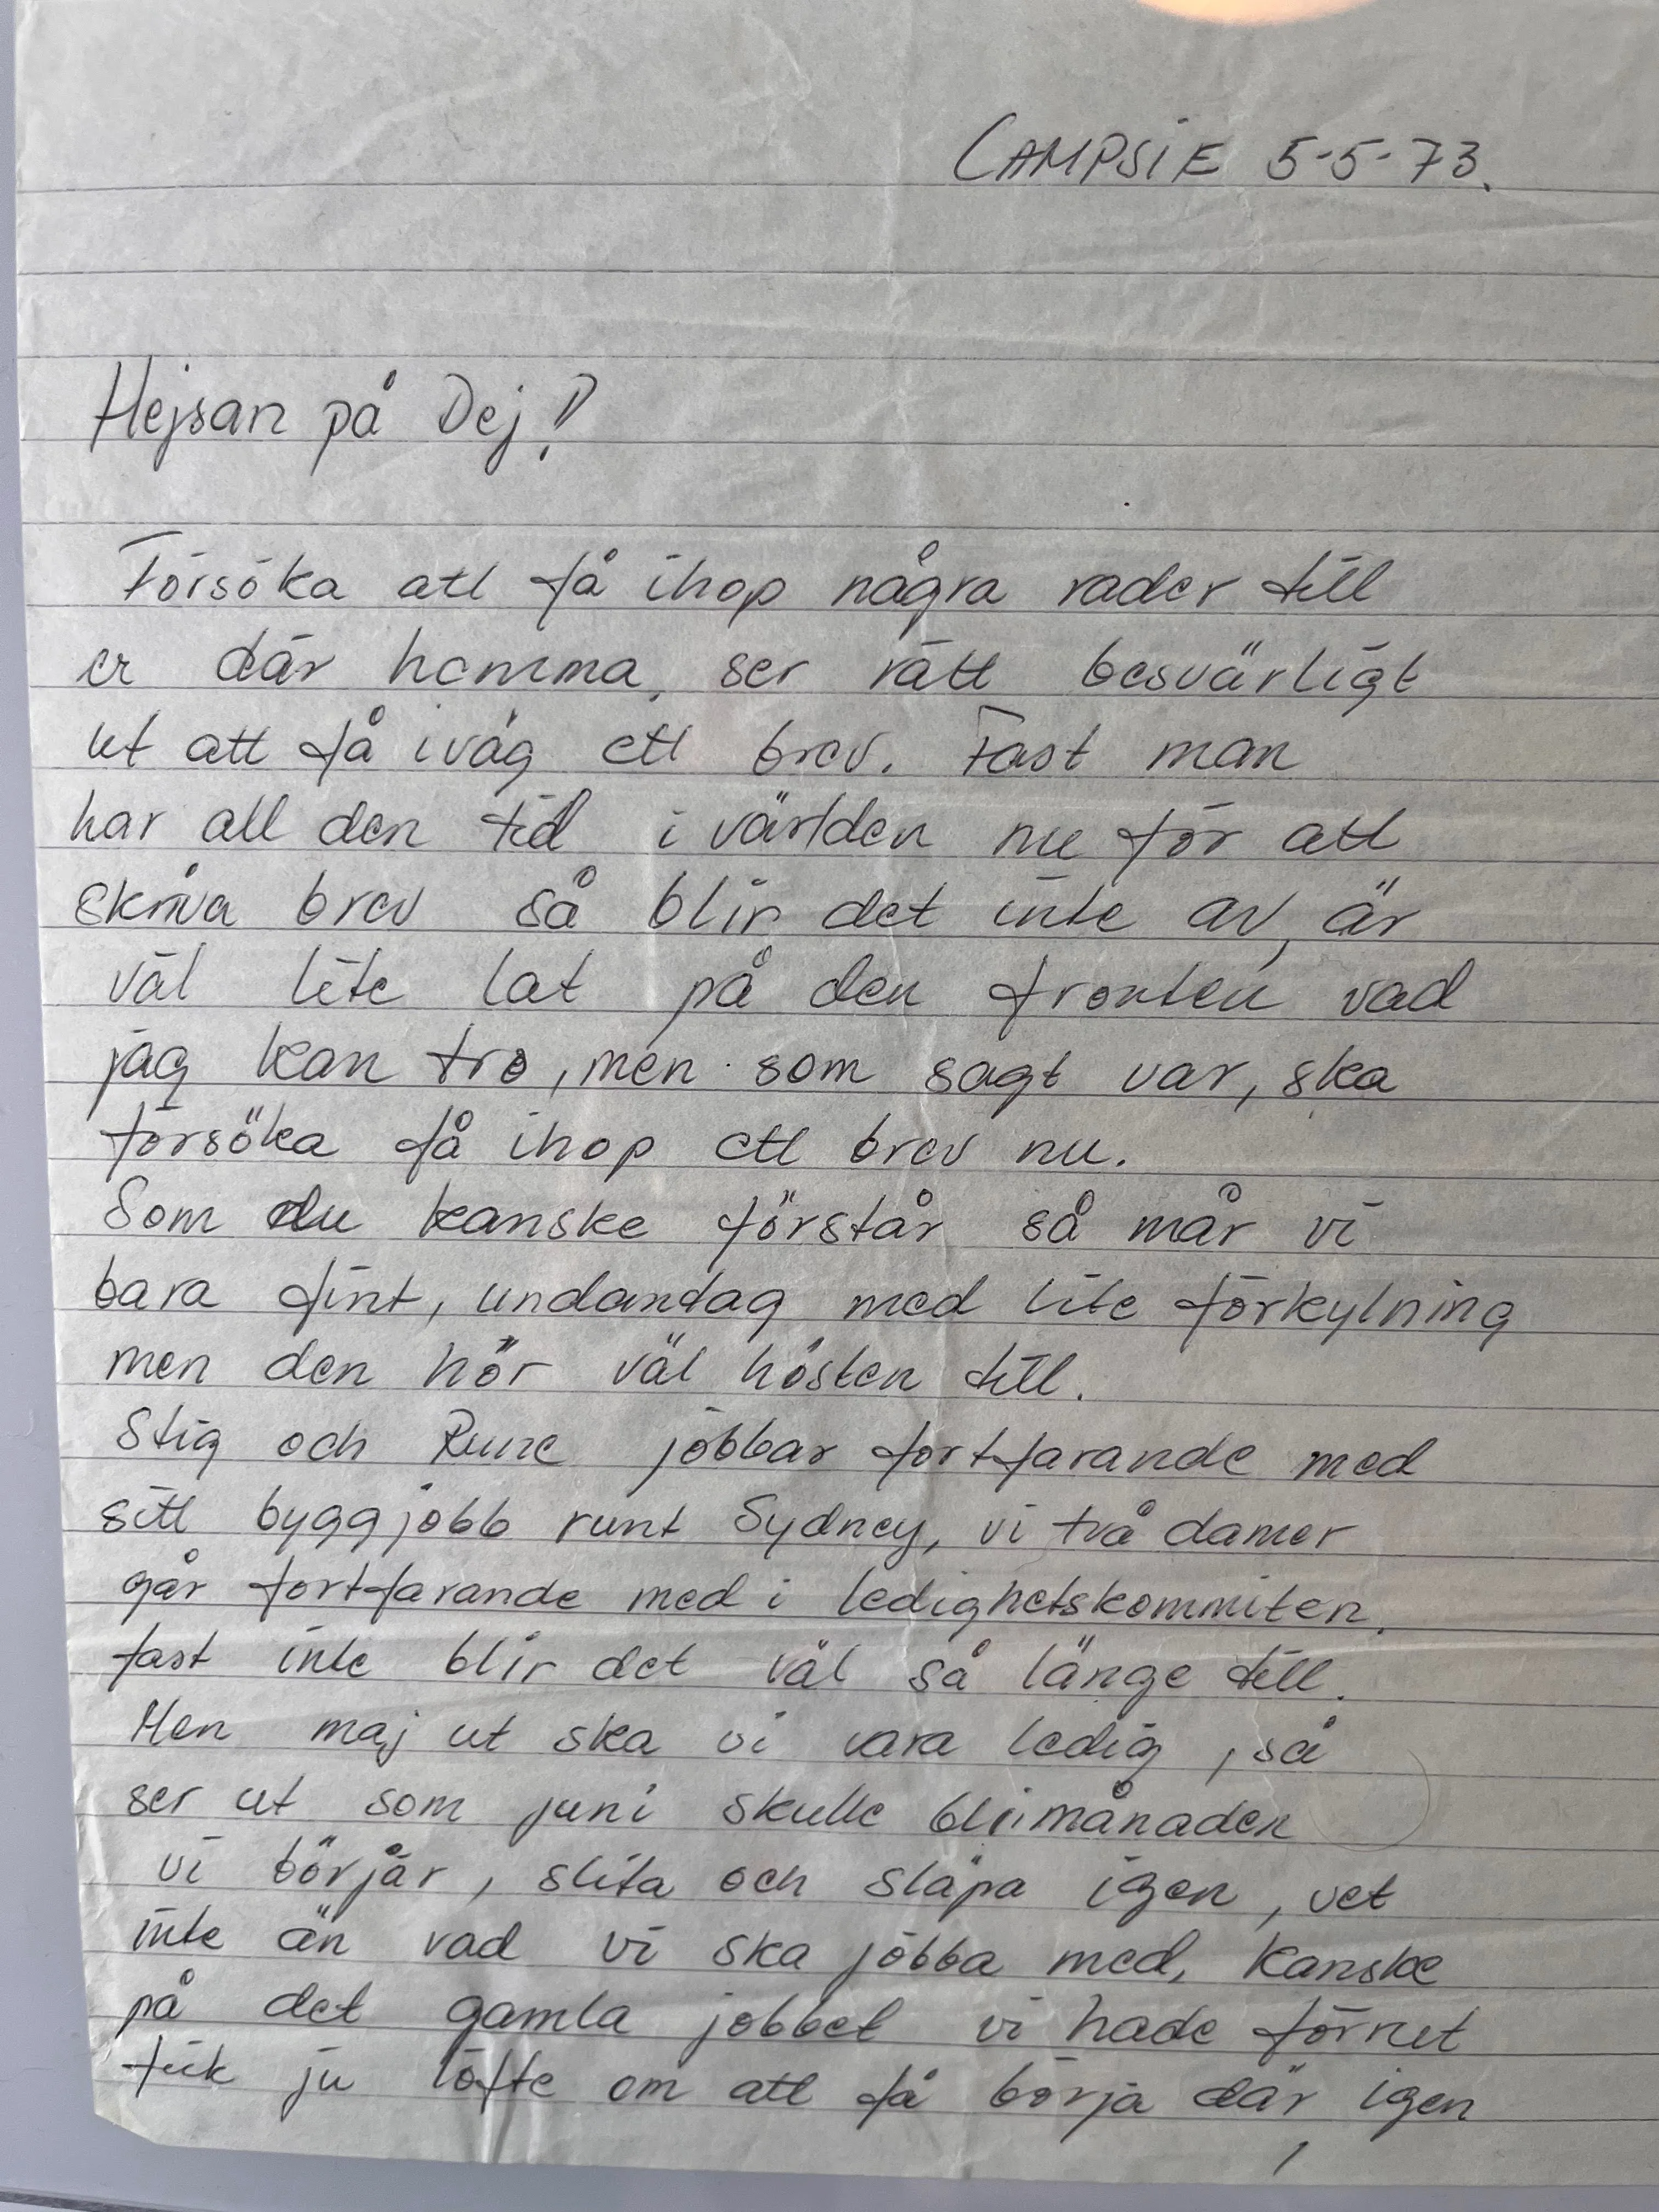 CAMPSiE 5-5-73.
Hejsan på Dej!
Försöka att få ihop några rader till
er där hemma, ser rätt besvärligt
ut att få iväg ett brev. Fast man
har all den tid i världen nu för att
skriva brev så blir det inte av, är
väl lite lat på den fronten vad
jag kan tro, men som sagt var, ska
försöka få ihop ett brev nu.
Som du kanske förstår så mår vi
bara fint, undantag med lite förkylning
men den hör väl hösten till.
Stig och Rune jobbar fortfarande med
sitt byggjobb runt Sydney, vi två damer
går fortfarande med i ledighetskommiten,
fast inte blir det väl så länge till.
Men maj ut ska vi vara ledig, så
ser ut som juni skulle bli månaden
vi börjar, slita och släpa igen, vet
inte än vad vi ska jobba med, kanske
på det gamla jobbet vi hade förrut
fick ju löfte om att få börja där igen